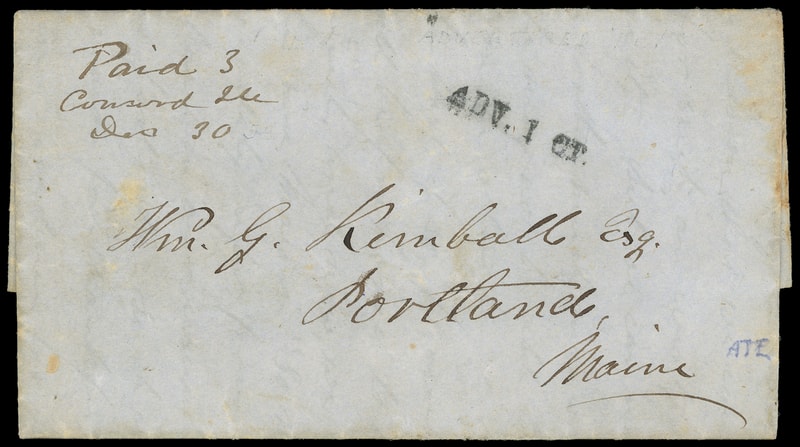 Paid 3
Concord Me
Dec 30
ADV. 1 CT.
Wm. G. Kimball Esq.
Portland,
Maine
ATE